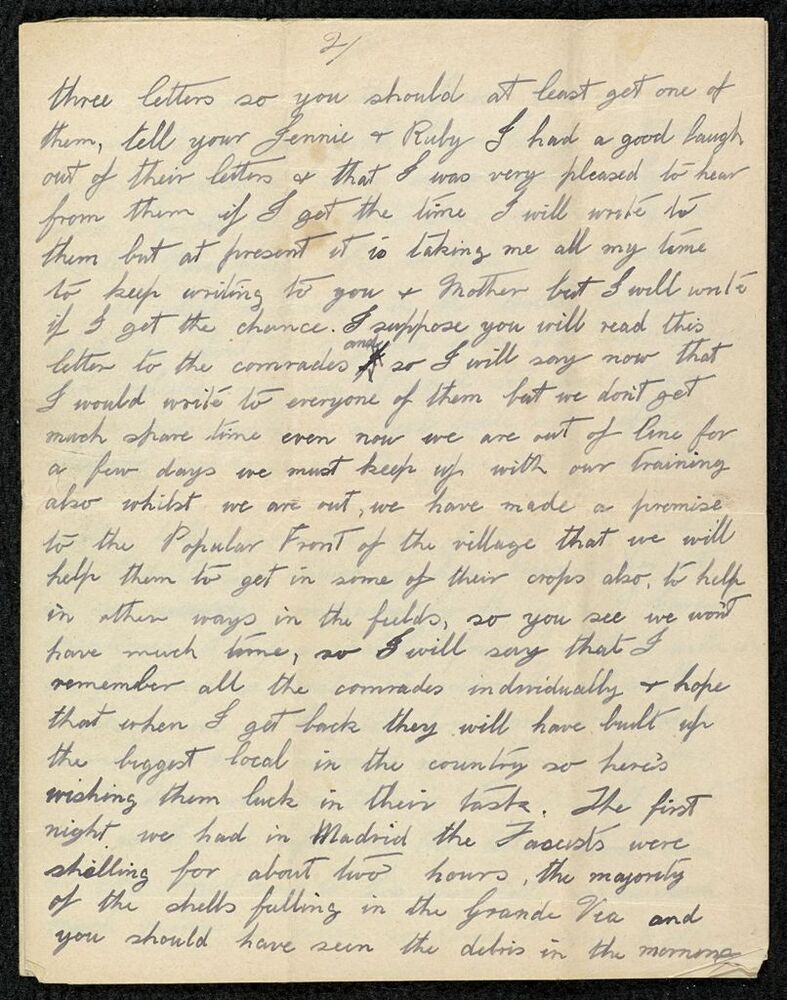 2/
three letters so you should at least get one of
them, tell your Jennie & Ruby I had a good laugh
out of their letters & that I was very pleased to hear
from them if I get the time I will write to
them but at present it is taking me all my time
to keep writing to you & Mother but I will write
if I get the chance. I suppose you will read this
letter to the comrades and so I will say now that
I would write to everyone of them but we don't get
much spare time even now we are out of line for
a few days we must keep up with our training
also whilst we are out, we have made a promise
to the Popular Front of the village that we will
help them to get in some of their crops also, to help
in other ways in the fields, so you see we won't
have much time, so I will say that I
remember all the comrades individually & hope
that when I get back they will have built up
the biggest local in the country so here's
wishing them luck in their task. The first
night we had in Madrid the Fascists were
shelling for about two hours, the majority
of the shells falling in the Grande Via and
you should have seen the debris in the morning